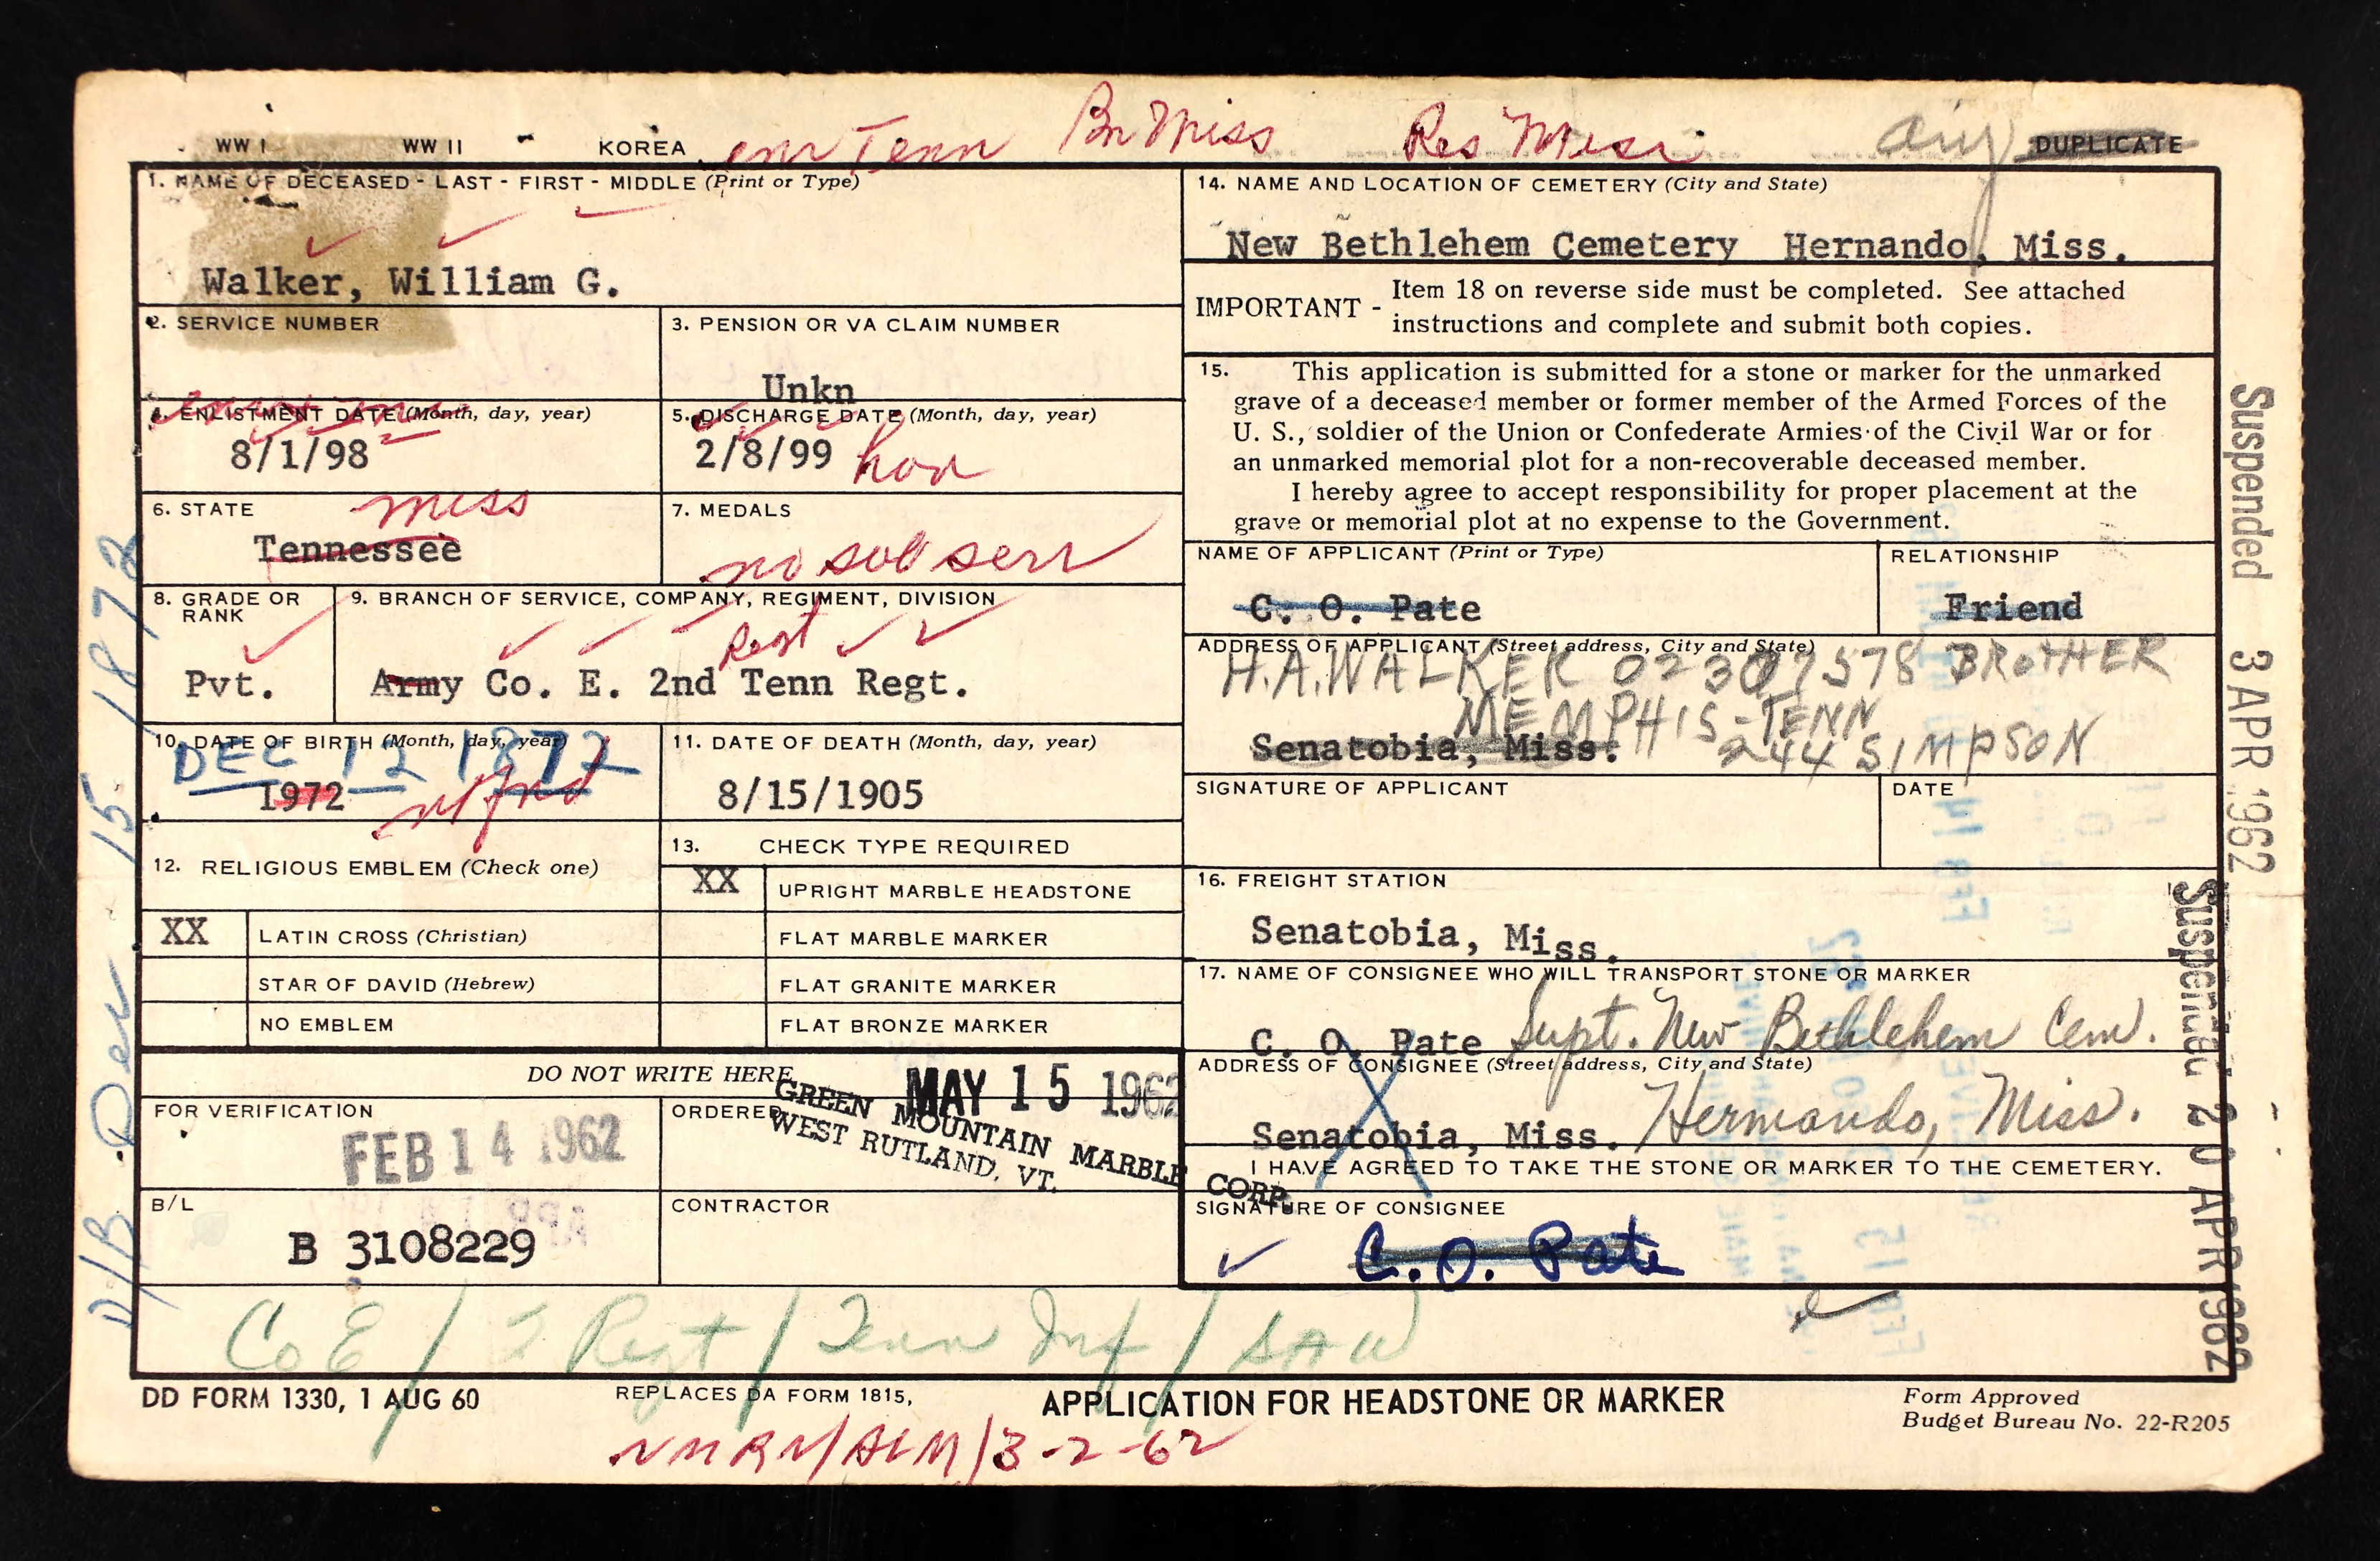 WW I WW II KOREA enr Tenn Bn Miss Res Miss DUPLICATE
1. NAME OF DECEASED - LAST - FIRST - MIDDLE (Print or Type)
Walker, William G.
2. SERVICE NUMBER
3. PENSION OR VA CLAIM NUMBER
Unkn
4. ENLISTMENT DATE (Month, day, year)
8/1/98
5. DISCHARGE DATE (Month, day, year)
2/8/99 hon
6. STATE
miss
Tennessee
7. MEDALS
no sob serv
8. GRADE OR RANK
Pvt.
9. BRANCH OF SERVICE, COMPANY, REGIMENT, DIVISION
Regt
Army Co. E. 2nd Tenn Regt.
10. DATE OF BIRTH (Month, day, year)
DEC 12 1872
1972
11. DATE OF DEATH (Month, day, year)
8/15/1905
12. RELIGIOUS EMBLEM (Check one)
XX LATIN CROSS (Christian)
STAR OF DAVID (Hebrew)
NO EMBLEM
13. CHECK TYPE REQUIRED
XX UPRIGHT MARBLE HEADSTONE
FLAT MARBLE MARKER
FLAT GRANITE MARKER
FLAT BRONZE MARKER
DO NOT WRITE HERE
FOR VERIFICATION
FEB 14 1962
ORDERED
MAY 15 1962
GREEN MOUNTAIN MARBLE CORP.
WEST RUTLAND, VT.
B/L
B 3108229
CONTRACTOR
14. NAME AND LOCATION OF CEMETERY (City and State)
New Bethlehem Cemetery Hernando, Miss.
IMPORTANT - Item 18 on reverse side must be completed. See attached
instructions and complete and submit both copies.
15. This application is submitted for a stone or marker for the unmarked
grave of a deceased member or former member of the Armed Forces of the
U. S., soldier of the Union or Confederate Armies of the Civil War or for
an unmarked memorial plot for a non-recoverable deceased member.
I hereby agree to accept responsibility for proper placement at the
grave or memorial plot at no expense to the Government.
NAME OF APPLICANT (Print or Type)
C. O. Pate
RELATIONSHIP
Friend
ADDRESS OF APPLICANT (Street address, City and State)
H.A. WALKER 02307578 BROTHER
MEMPHIS-TENN
Senatobia, Miss. 244 SIMPSON
SIGNATURE OF APPLICANT
DATE
16. FREIGHT STATION
Senatobia, Miss.
17. NAME OF CONSIGNEE WHO WILL TRANSPORT STONE OR MARKER
C. O. Pate Supt. New Bethlehem Cem.
ADDRESS OF CONSIGNEE (Street address, City and State)
Senatobia, Miss. Hernando, Miss.
I HAVE AGREED TO TAKE THE STONE OR MARKER TO THE CEMETERY.
SIGNATURE OF CONSIGNEE
C. O. Pate
Co E / 2 Regt / Tenn Inf / SAW
DD FORM 1330, 1 AUG 60 REPLACES DA FORM 1815, APPLICATION FOR HEADSTONE OR MARKER
Form Approved
Budget Bureau No. 22-R205
3-2-62
D/B Dec 15 1872
Suspended 3 APR 1962
Suspended 20 APR 1962